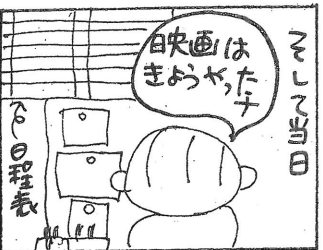 そして当日
映画は
きょうやったナ
日程表